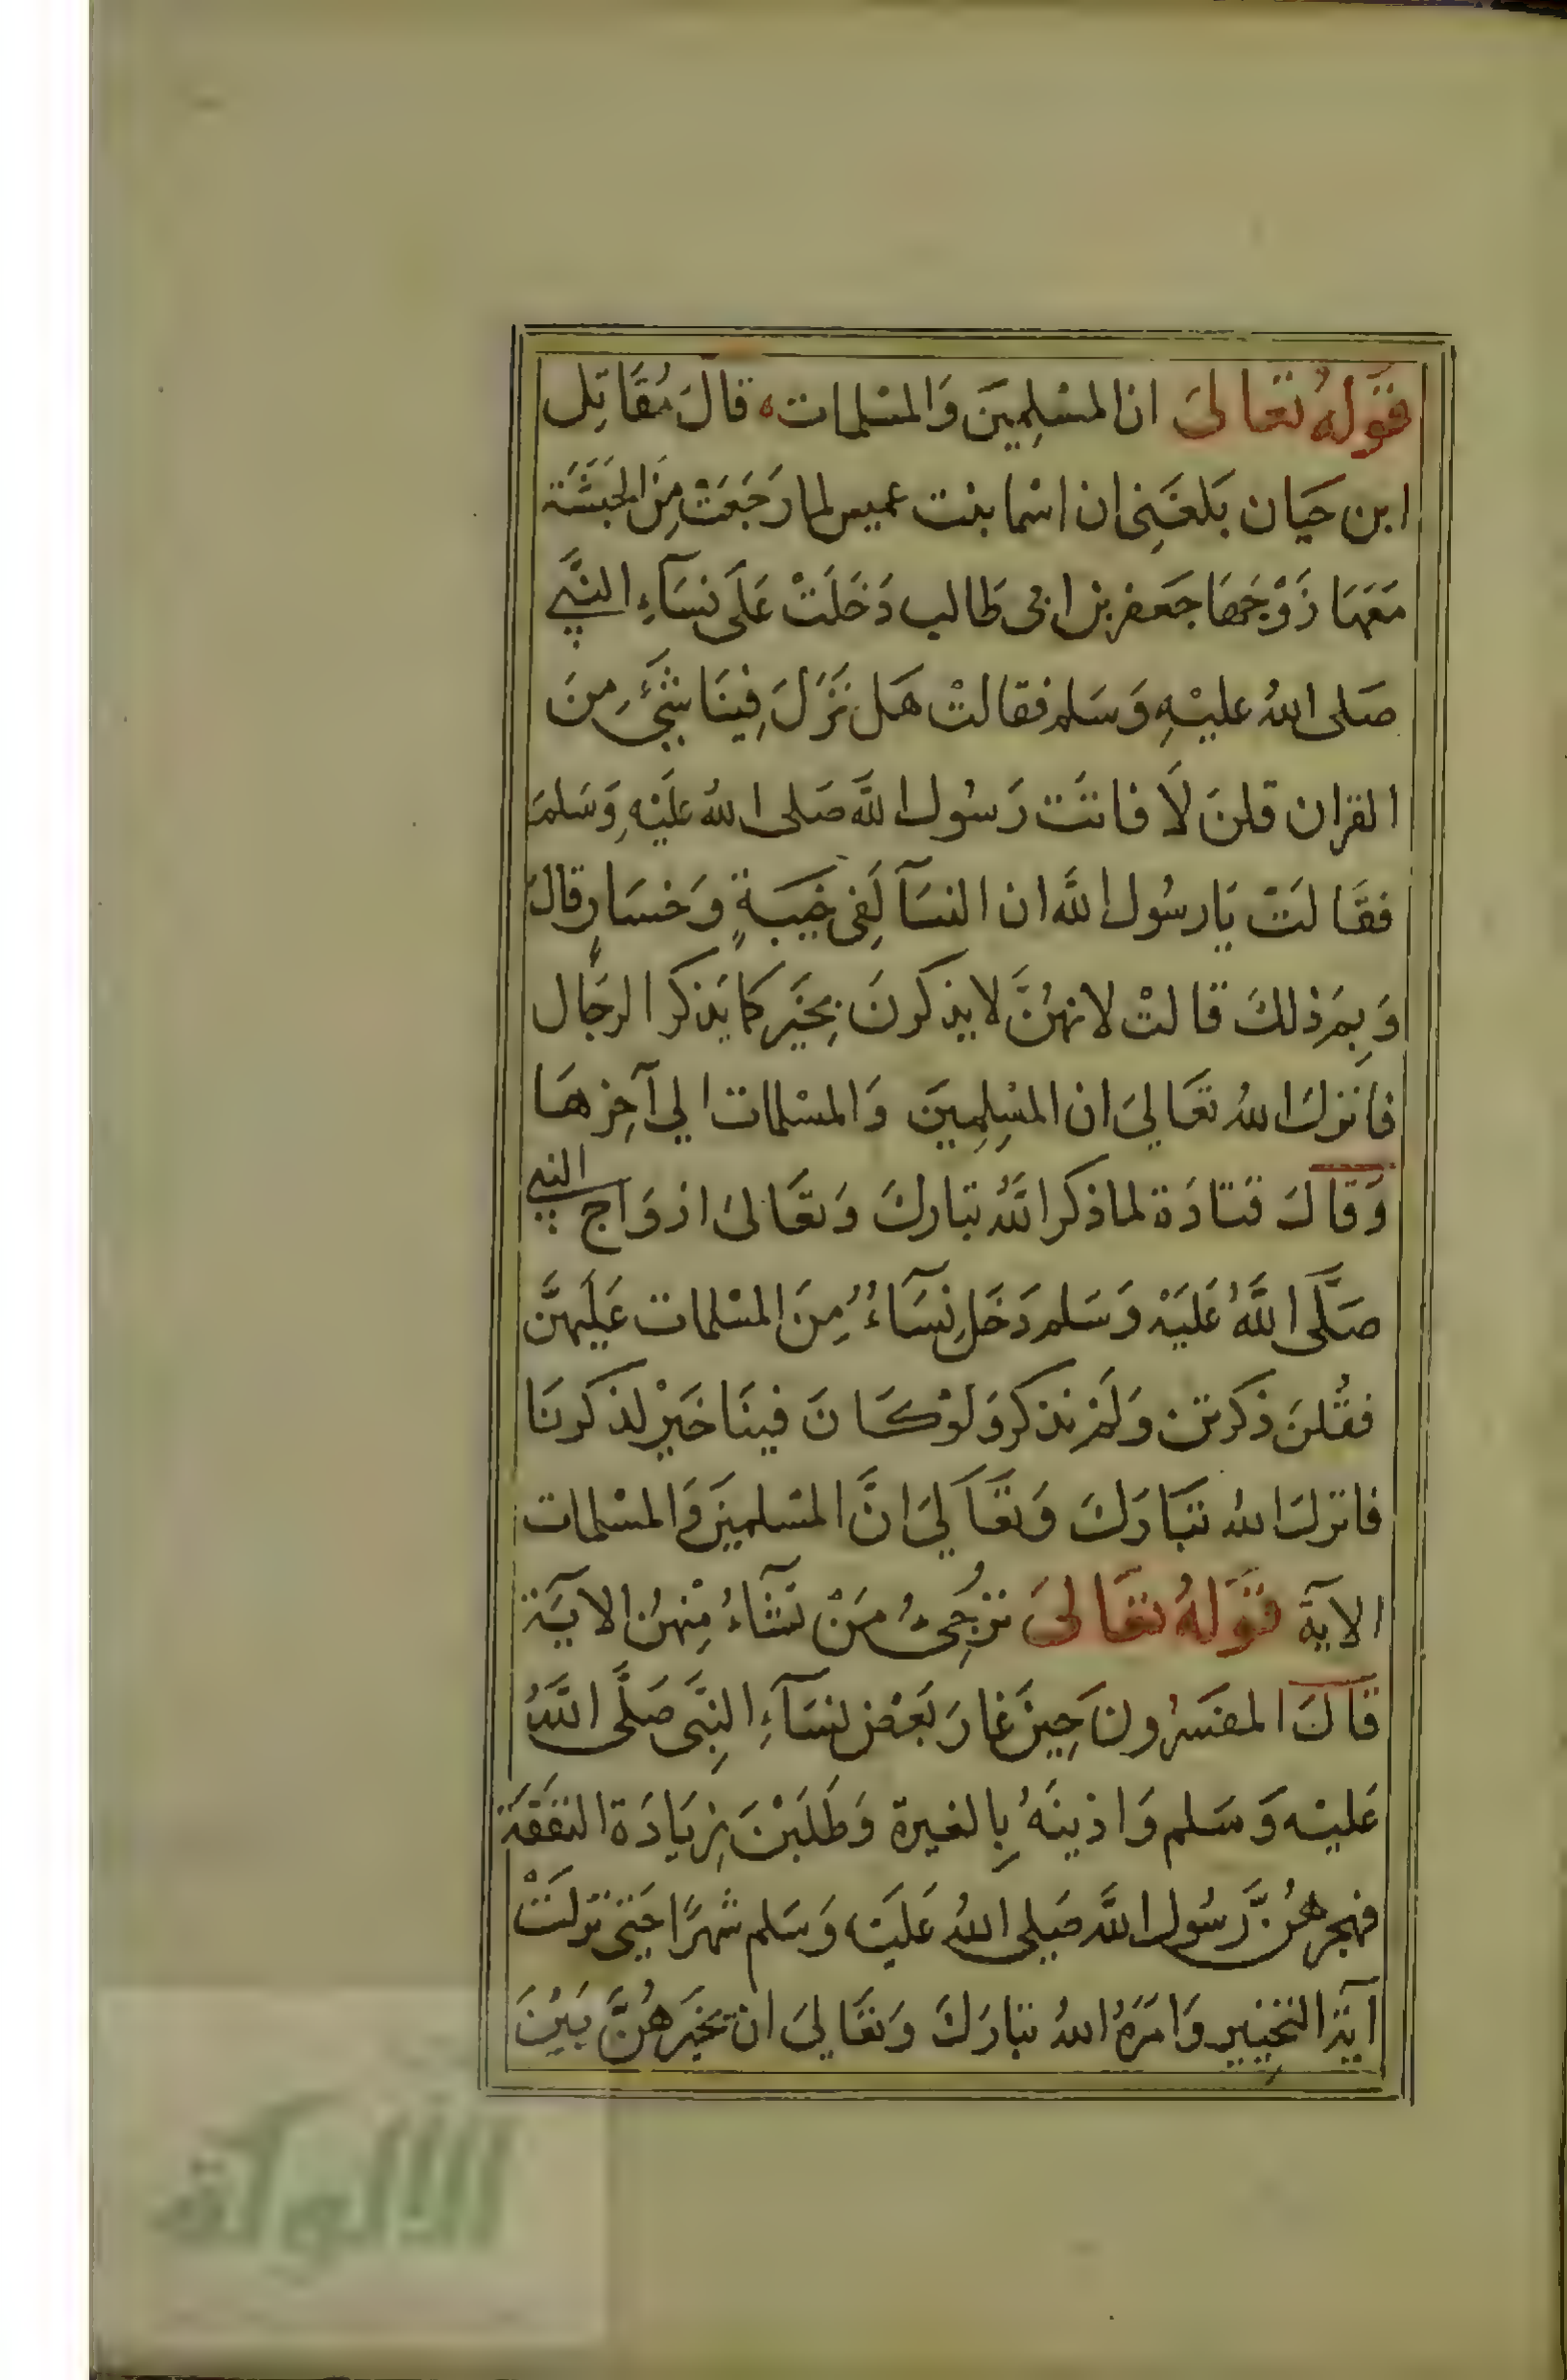 قَوْلُهُ تَعَالىَ ان المسْلِمِينَ وَالمسْلمات، قالَ مُقَاتِل
ابن حَيَان بَلغَنِى ان اسْما بنت عميس لما رَجَعَتْ مِنَ الحَبَشَة
مَعَهَا زَوْجُهَا جَعفر بن ابى طَالب دَخَلَتْ عَلَى نسَآءِ النَّبِي
صَلى اللهُ عليْهِ وَسَلم فقالتْ هَل نَزَلَ فِينَا شَئٌ مِنَ
القران قلنَ لَا فاتَت رَسُول اللَّه صَلى اللهُ عَليْهِ وَسَلمَ
فقَالَتْ يَا رسُول اللَّه ان النسَآ لَفِى خَيبَةٍ وَخسَارٍ قالَ
وَبِمَ ذلكَ قالتْ لانهُنَّ لا يذكرنَ بِخَيْرٍ كما يَذكر الرجَال
فانزلَ اللهُ تعَالىَ ان المسْلِمِينَ وَالمسْلمات الي آخِرهَا
وَقالَ قتادَة لما ذكر اللَّهُ تبارَكَ وَتعَالىَ ازوَاج النبي
صَلَّى اللَّهُ عَلَيْهِ وَسَلم دَخَل نِسَآءٌ مِنَ المسْلمات عَلَيهنَّ
فقُلنَ ذكرتن وَلَمْ نذكر وَلوْ كَانَ فينَا خَيْر لذكرنَا
فانزلَ اللهُ تبَارَكَ وَتعَالىَ انَّ المسْلمينَ وَالمسْلمات
الآية قَوْلُهُ تعَالىَ تُرْجِئُ مَنْ تَشَآءُ مِنْهُن الايَة
قَالَ المفَسرُون حِينَ غارَ بَعْض نسَآءِ النبِّى صَلَّى اللَّهُ
عَليْه وَسَلم وَاذينَهُ بِالغيرة وَطَلَبْنَ زِيَادَة النفَقَة
فهجرهُنَّ رَسُول اللَّه صَلى اللهُ عَليْه وَسَلم شهرًا حَتى نزلَتْ
آية التخيير وَامَرَهُ اللهُ تبَارَكَ وَتعَالىَ ان يخَيرهُنَّ بَيْنَ
الألوكة